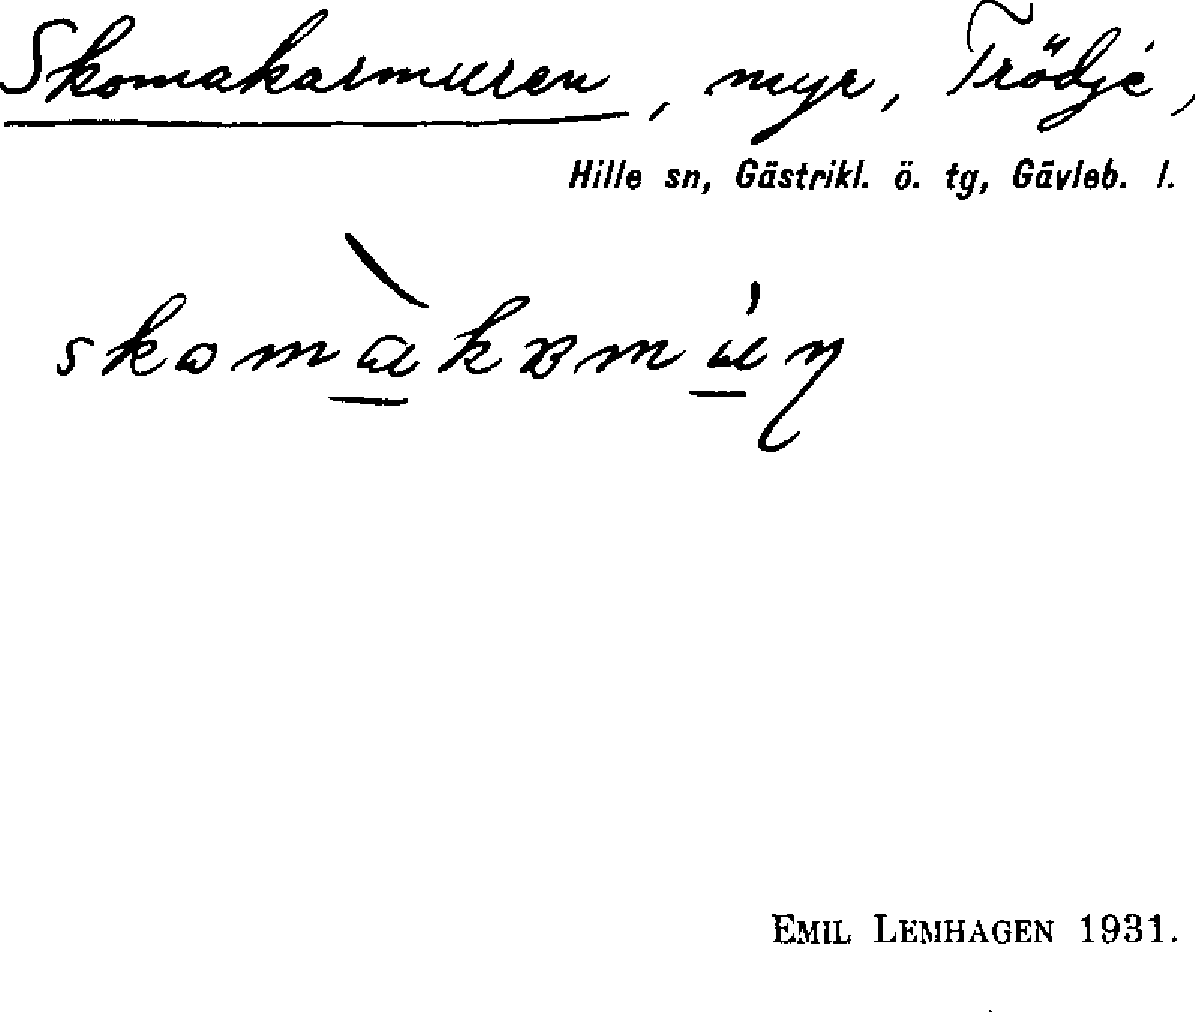 Skomakarmuren, myr, Trödje,
Hille sn, Gästrikl. ö. tg, Gävleb. l.
skomàkɐmún
EMIL LEMHAGEN 1931.